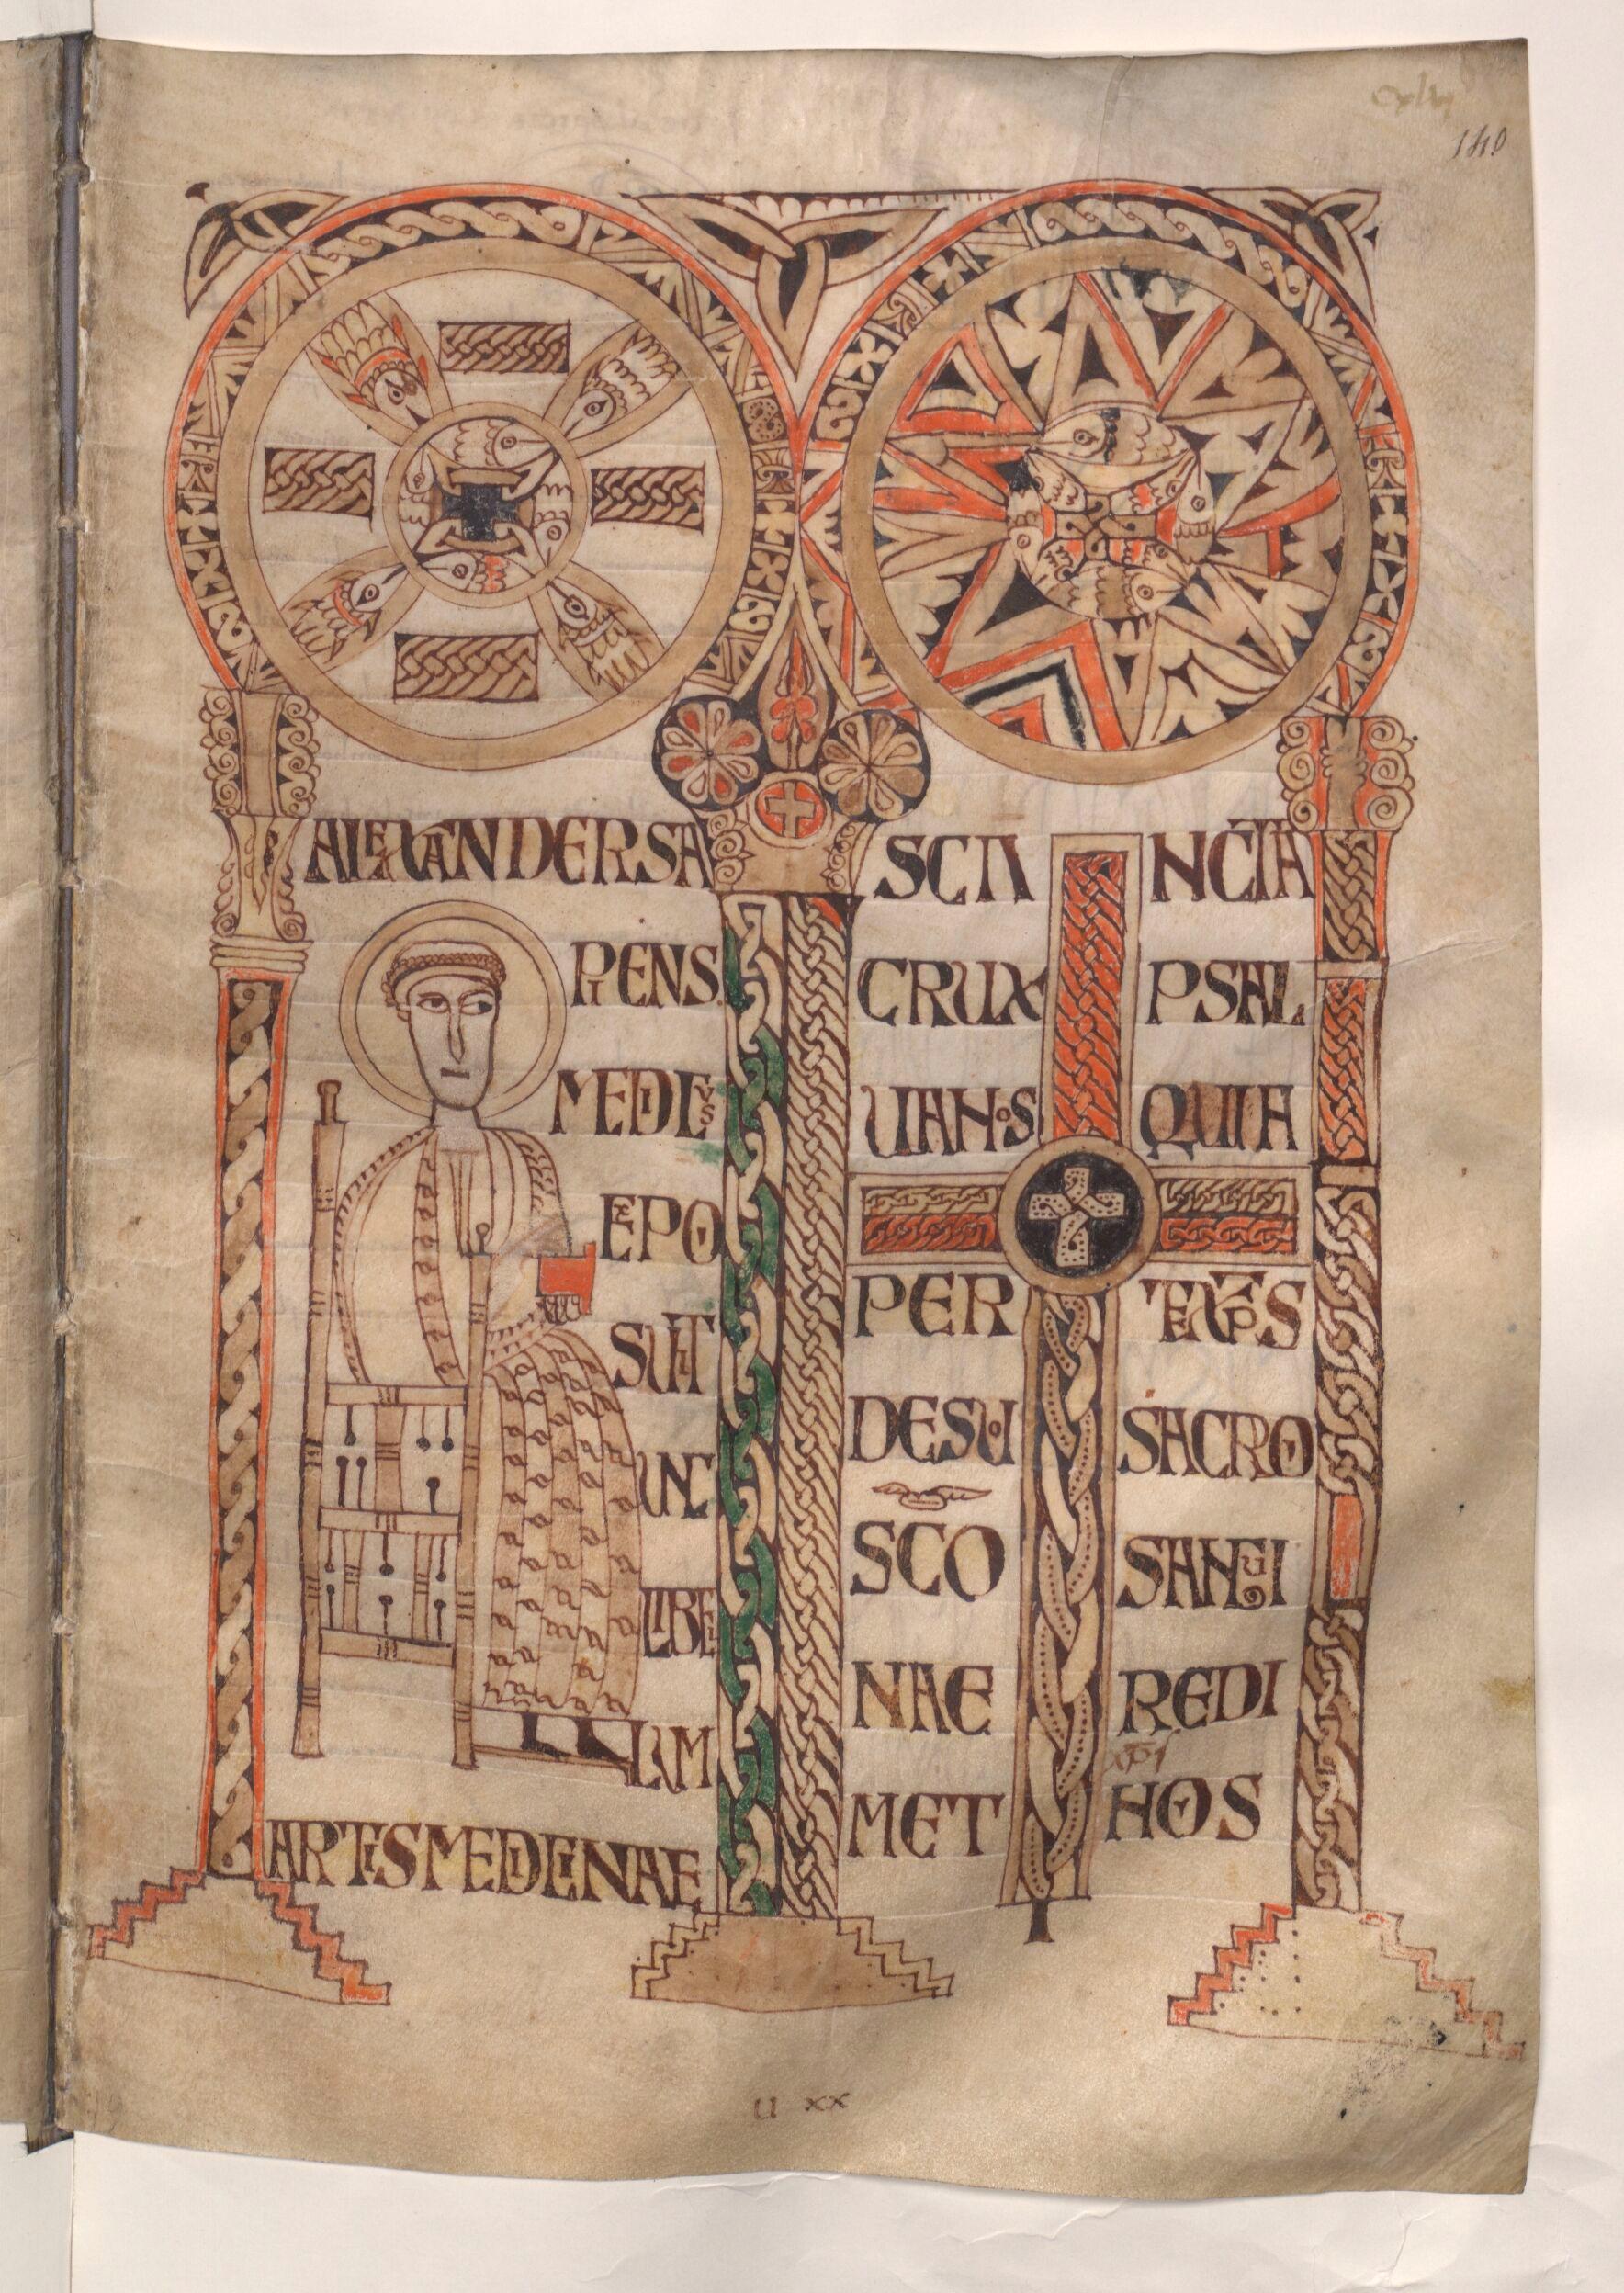 140
ALEXANDERSA
PIENS
MEDICVS
EXPO
SUIT
UNC
LIBEL
LUM
ARTISMEDICINAE
SCA NCTA
CRUX PSAL
UANOS QUIA
PER TEXPS
DESUO SACRO
SCO SANGUI
NAE REDI
xpi
MET HOS
U xx